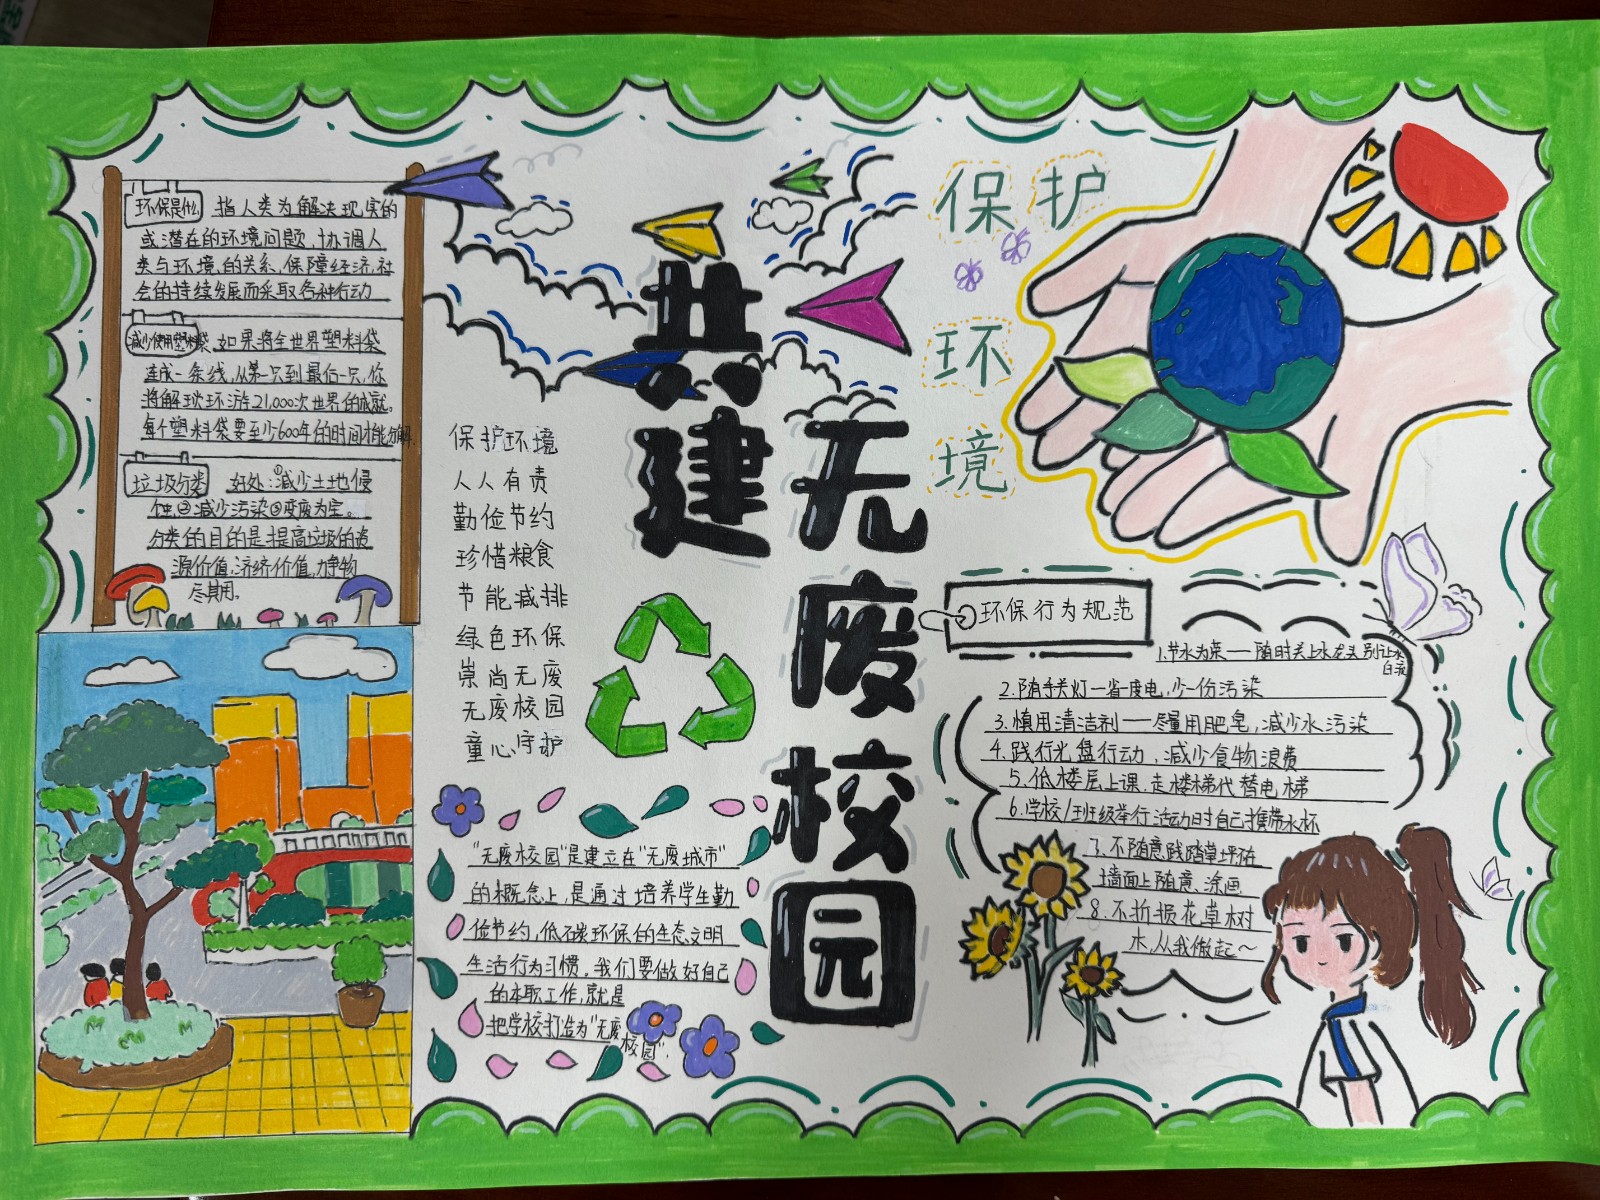 共建
无废校园
保护
环
境
环保是什么 指人类为解决现实的
或潜在的环境问题,协调人
类与环境的关系,保障经济,社
会的持续发展而采取各种行动
减少使用塑料袋 如果将全世界塑料袋
连成一条线,从第一只到最后一只,你
将解环游21,000次世界的成就。
每个塑料袋要至少600年的时间才能分解
垃圾分类 好处:①减少土地侵
蚀,②减少污染③变废为宝。
分类的目的是提高垃圾的资
源价值,济经价值,力争物
尽其用。
保护环境
人人有责
勤俭节约
珍惜粮食
节能减排
绿色环保
崇尚无废
无废校园
童心守护
“无废校园”是建立在“无废城市”
的概念上,是通过培养学生勤
俭节约,低碳环保的生态文明
生活行为习惯,我们要做好自己
的本职工作,就是
把学校打造为“无废
校园”.
环保行为规范
1.节水为荣——随时关上水龙头别让水
白流
2.随手关灯一省一度电,少一份污染
3.慎用清洁剂——尽量用肥皂,减少水污染
4.践行光盘行动,减少食物浪费
5.低楼层上课,走楼梯代替电梯
6.学校/班级举行活动时自己携带水杯
7.不随意践踏草坪在
墙面上随意涂画
8.不折损花草树
木,从我做起~